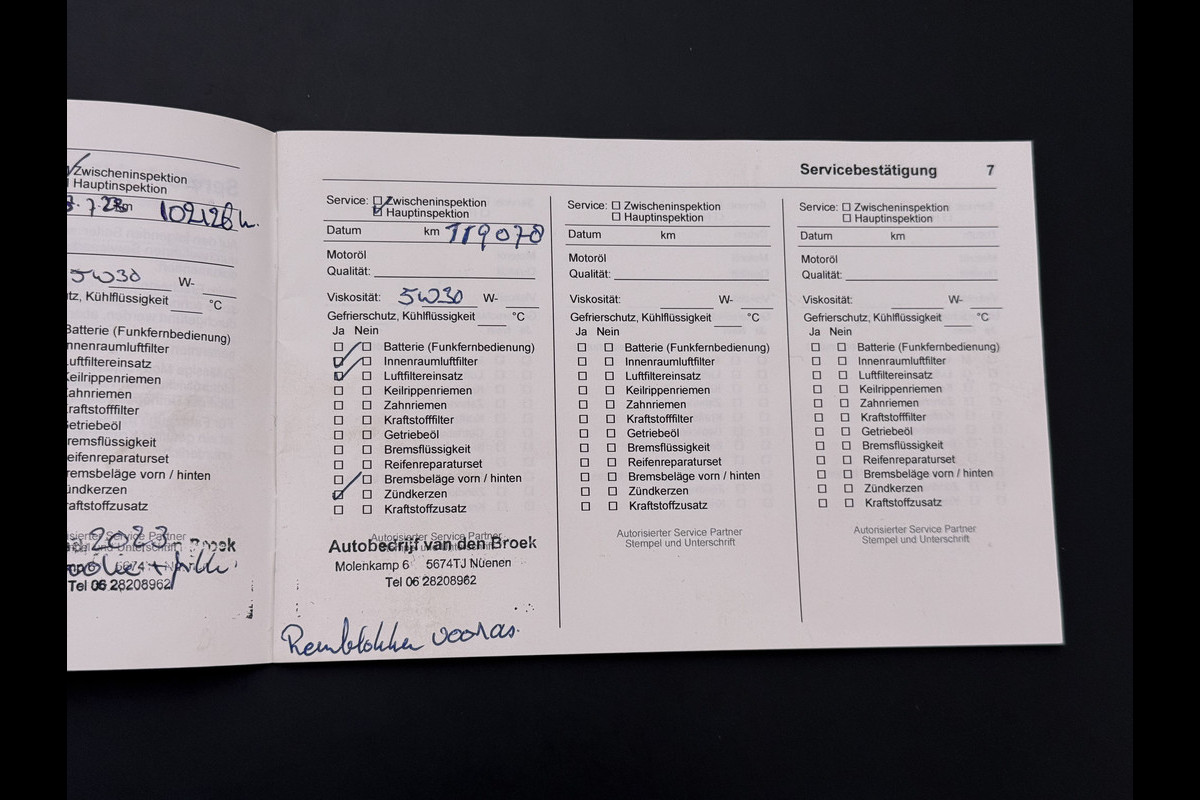 Zwischeninspektion
Hauptinspektion
7.23 km 102126 h.
5W30 W-
tz, Kühlflüssigkeit °C
Batterie (Funkfernbedienung)
nnenraumluftfilter
uftfiltereinsatz
Keilrippenriemen
ahnriemen
raftstofffilter
etriebeöl
remsflüssigkeit
eifenreparaturset
remsbeläge vorn / hinten
ündkerzen
raftstoffzusatz
2023
isierter Service Partner
Stempel und Unterschrift
Broek
5674
Tel 06 28208962
Servicebestätigung 7
Service: Zwischeninspektion
Hauptinspektion
Datum km 119078
Motoröl
Qualität:
Viskosität: 5W30 W-
Gefrierschutz, Kühlflüssigkeit °C
Ja Nein
Batterie (Funkfernbedienung)
Innenraumluftfilter
Luftfiltereinsatz
Keilrippenriemen
Zahnriemen
Kraftstofffilter
Getriebeöl
Bremsflüssigkeit
Reifenreparaturset
Bremsbeläge vorn / hinten
Zündkerzen
Kraftstoffzusatz
Autorisierter Service Partner
Stempel und Unterschrift
Autobedrijf van den Broek
Molenkamp 6 5674TJ Nuenen
Tel 06 28208962
Remblokken vooras.
Service: Zwischeninspektion
Hauptinspektion
Datum km
Motoröl
Qualität:
Viskosität: W-
Gefrierschutz, Kühlflüssigkeit °C
Ja Nein
Batterie (Funkfernbedienung)
Innenraumluftfilter
Luftfiltereinsatz
Keilrippenriemen
Zahnriemen
Kraftstofffilter
Getriebeöl
Bremsflüssigkeit
Reifenreparaturset
Bremsbeläge vorn / hinten
Zündkerzen
Kraftstoffzusatz
Autorisierter Service Partner
Stempel und Unterschrift
Service: Zwischeninspektion
Hauptinspektion
Datum km
Motoröl
Qualität:
Viskosität: W-
Gefrierschutz, Kühlflüssigkeit °C
Ja Nein
Batterie (Funkfernbedienung)
Innenraumluftfilter
Luftfiltereinsatz
Keilrippenriemen
Zahnriemen
Kraftstofffilter
Getriebeöl
Bremsflüssigkeit
Reifenreparaturset
Bremsbeläge vorn / hinten
Zündkerzen
Kraftstoffzusatz
Autorisierter Service Partner
Stempel und Unterschrift